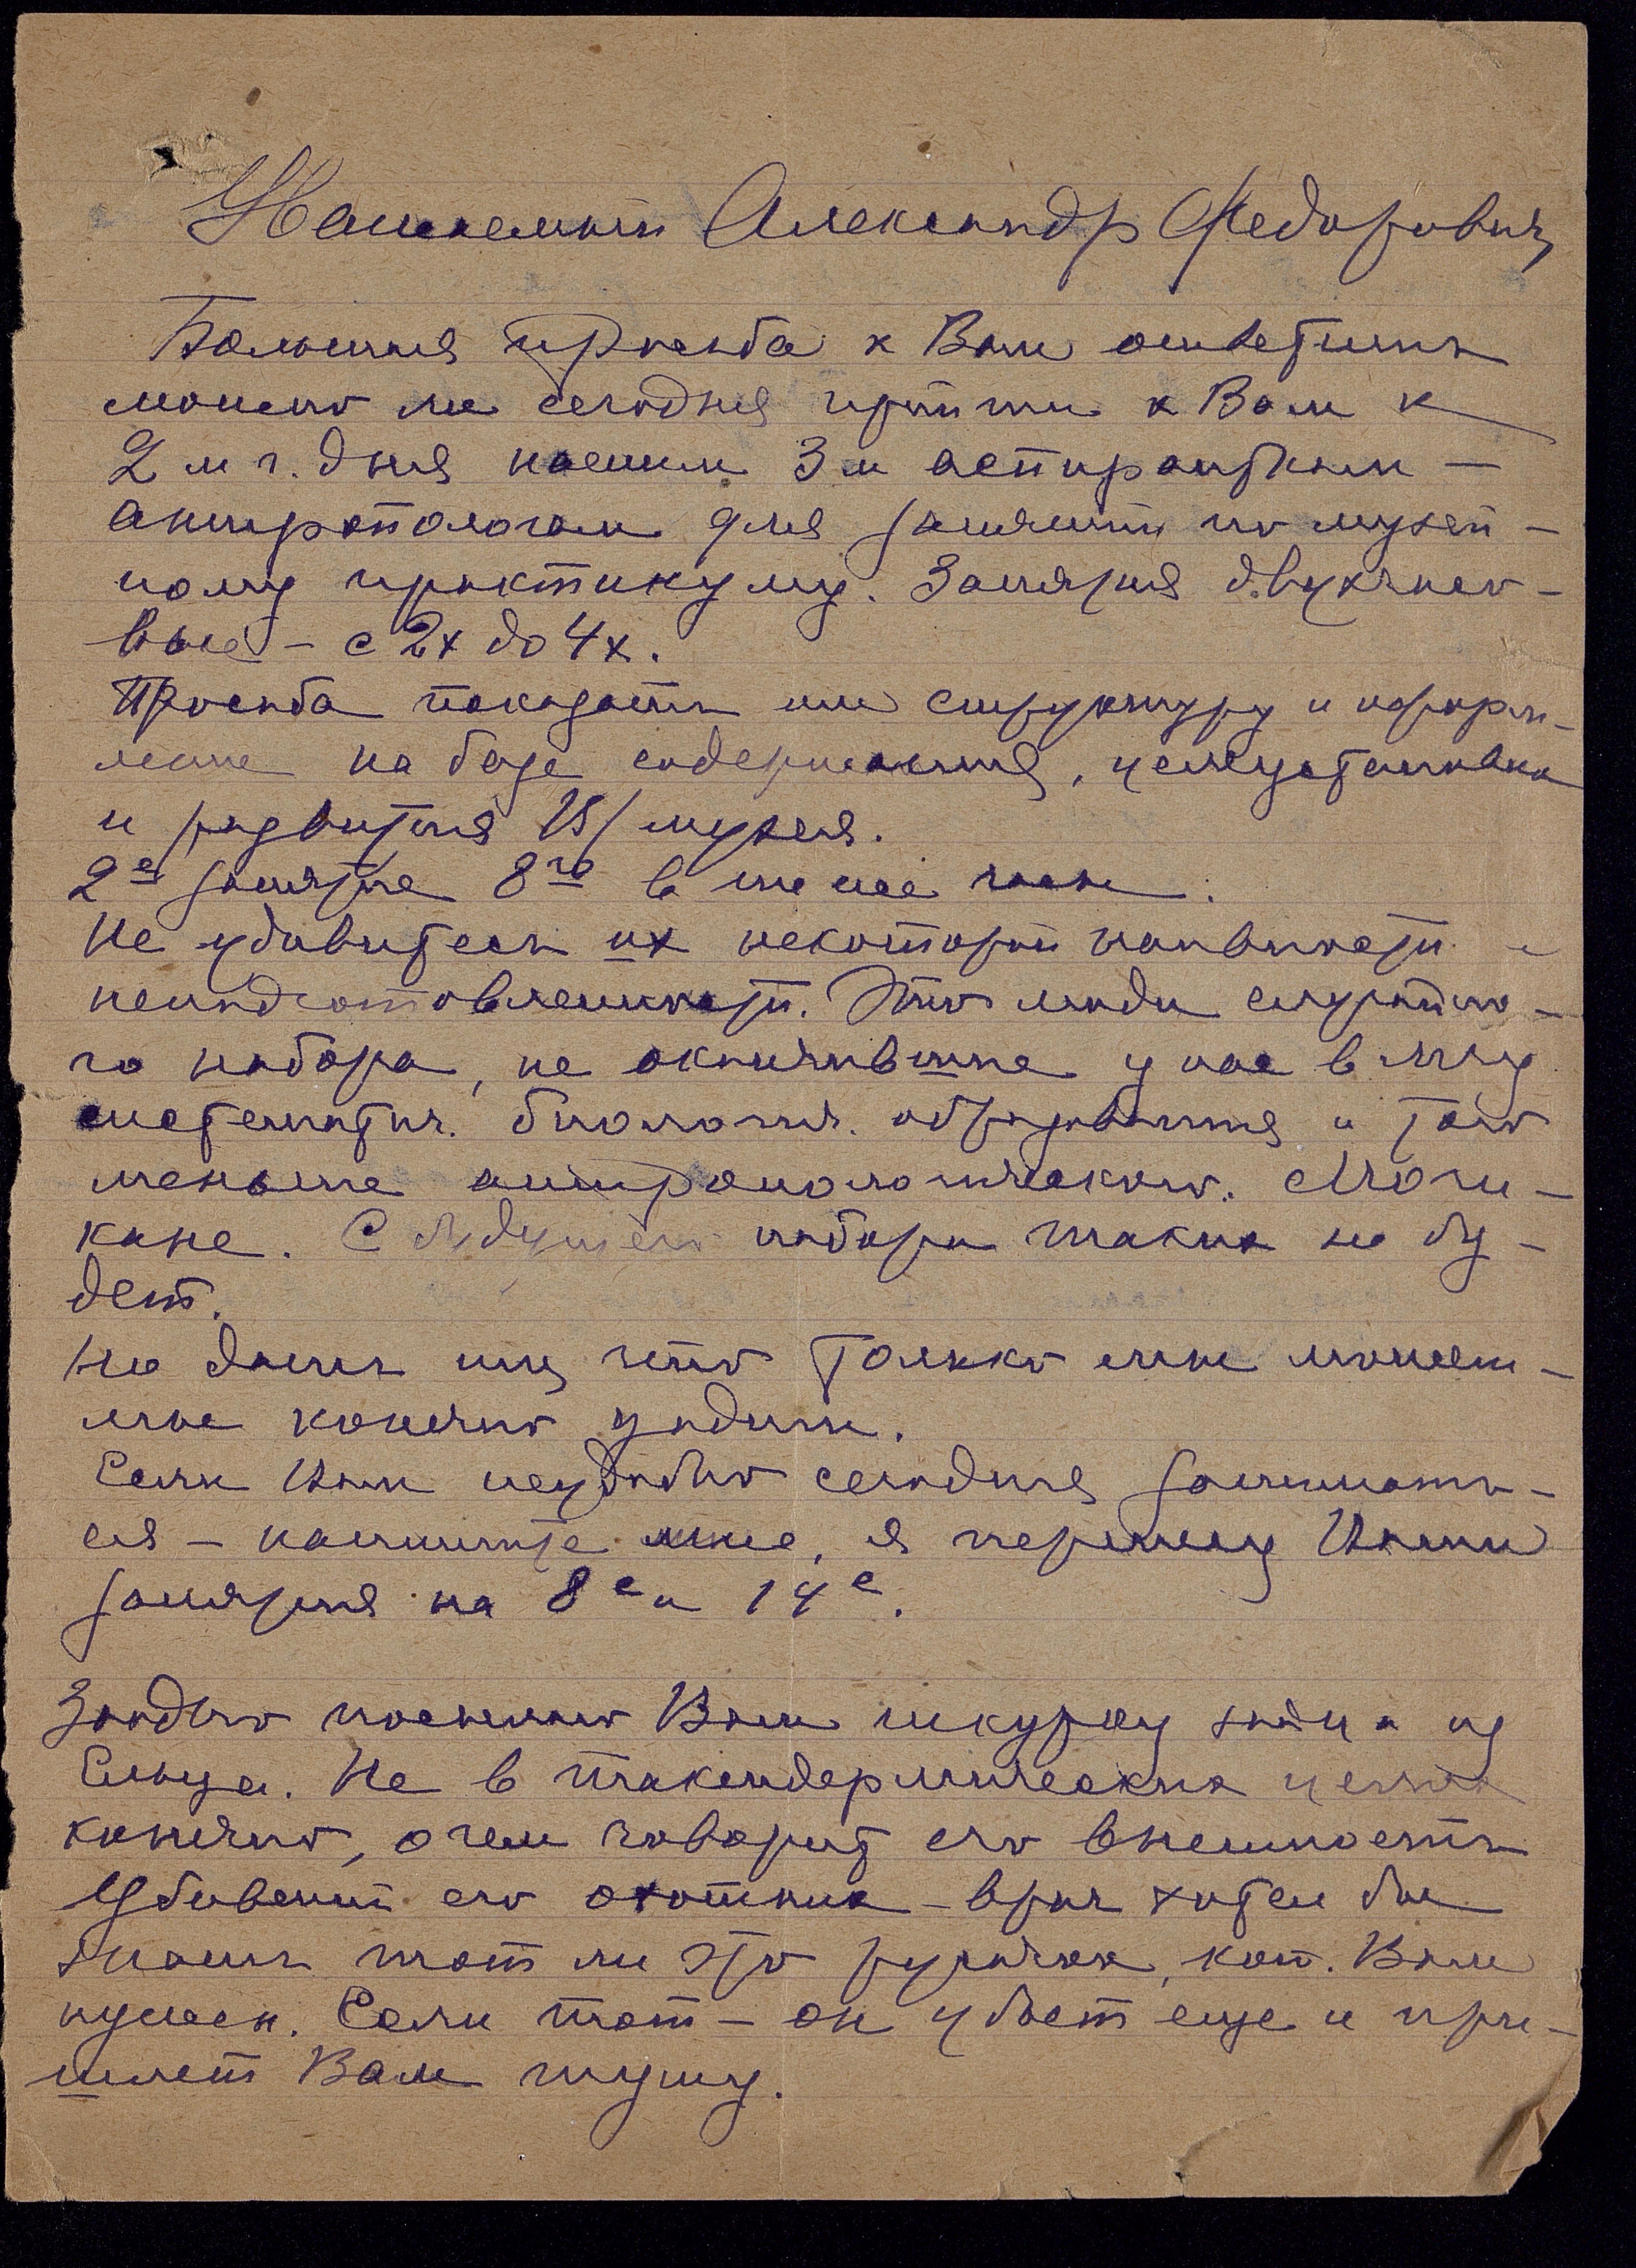 Александр Федорович,
Большая просьба к Вам ответить
можно ли сегодня прийти к Вам к
2 м ч. дня нашим 3 м аспиранткам —
антропологам для занятий по музей-
ному практикуму. Занятия двухчасо-
вые – с 2х до 4х.
Просьба показать им структуру и оформ-
ление на базе содержания, целеустановки
и развития музея.
2ое занятие 8го в те же часы.
Не удивитесь их некоторой наивности и
неподготовленности. Это люди случайно-
го набора, не окончившие у нас в МГУ
систематич. биологич. образования и того
меньше антропологического. Моги-
кане. С будущего набора таких не бу-
дет.
Но дать им что только мы можем –
мы конечно зададим.
Если Вам неудобно сегодня занимать-
ся – напишите мне, я перенесу Ваши
занятия на 8е и 14е.
Заодно посылаю Вам шкурку зайца из
Ельца. Не в таксидермических целях
конечно, о чем говорит его внешность
Убивший его охотник – врач хотел бы
знать тот ли это русачок, кот. Вам
нужен. Если тот – он убьет еще и при-
шлет Вам тушу.